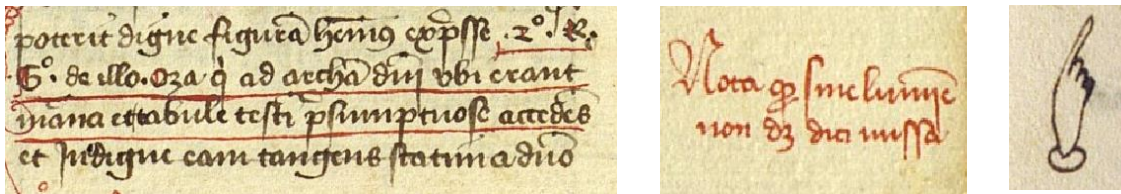 poterit digne figurā hemꝰ exp̄sse . 2º. R.
Gº. de illo. Oza q̇ ad archā dn̄i vbi erant
māna et tabule testi p̄sumptuose accedēs
et Indigne eam tangens statim a dn̄o
Nota ꝙ sine lumīe
non dꝫ dici missa